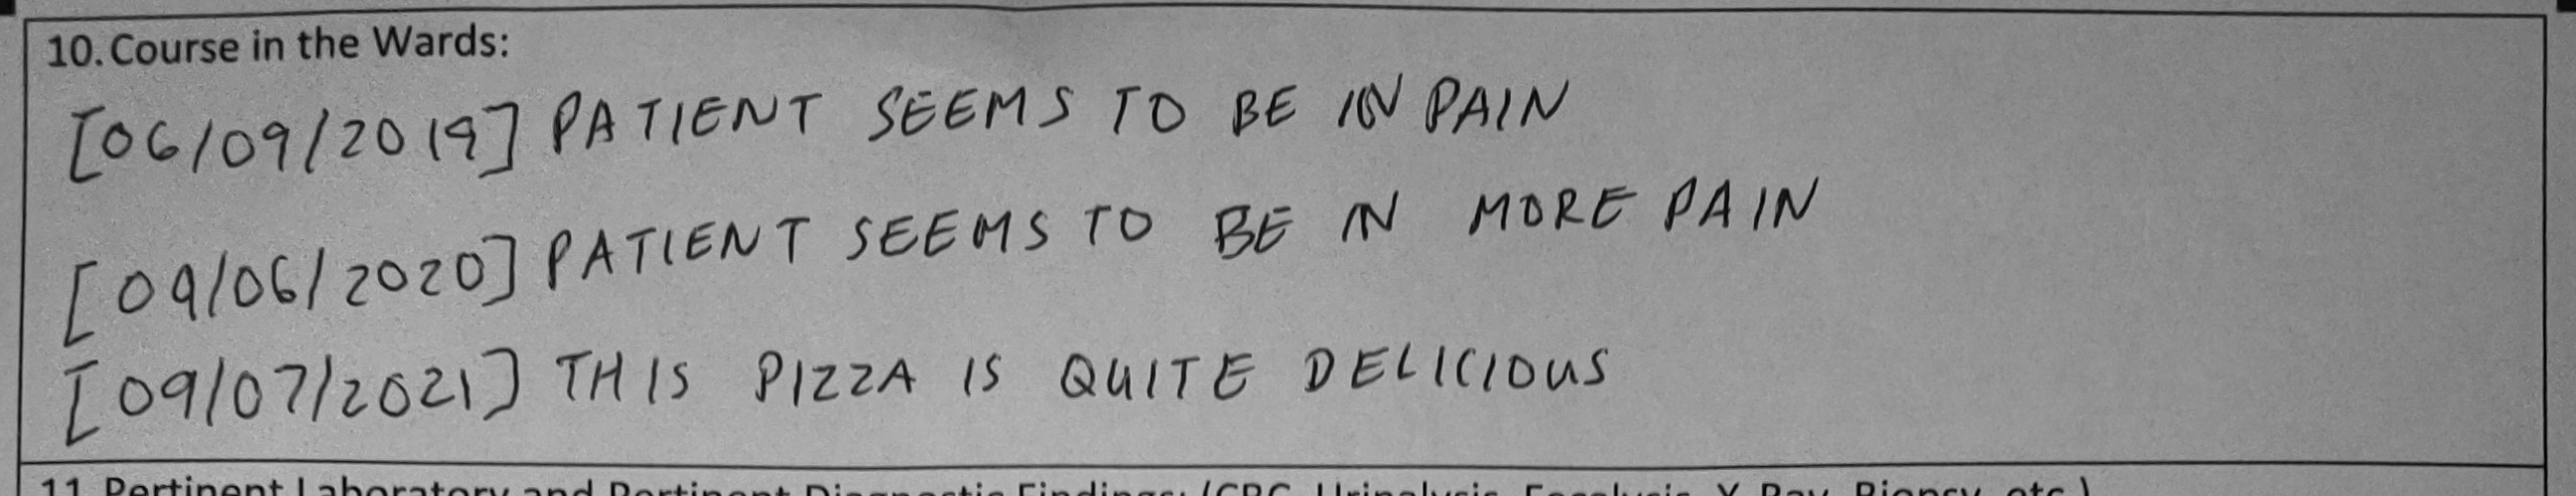 10. Course in the Wards:
[06/09/2019] PATIENT SEEMS TO BE IN PAIN
[09/06/2020] PATIENT SEEMS TO BE IN MORE PAIN
[09/07/2021] THIS PIZZA IS QUITE DELICIOUS
11. Pertinent Laboratory and Pertinent Diagnostic Findings: (CBC, Urinalysis, Fecalysis, X-Ray, Biopsy, etc.)